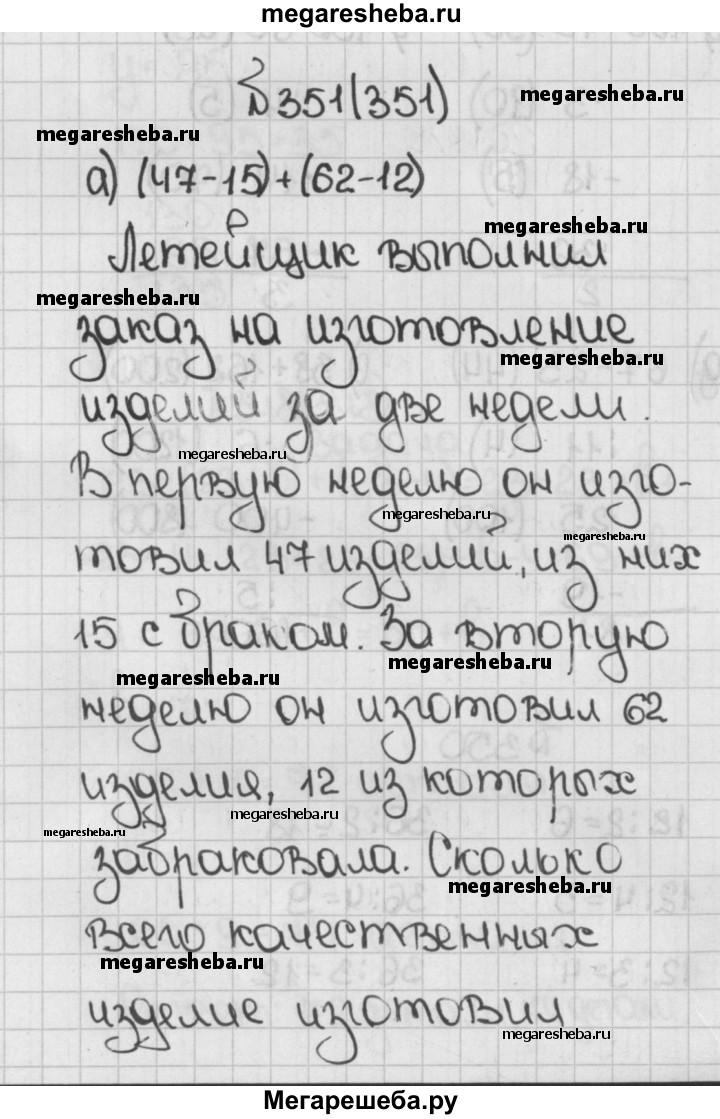 megaresheba.ru
№351(351)
megaresheba.ru
megaresheba.ru
а) (47-15)+(62-12)
megaresheba.ru
Летейщик выполнил
megaresheba.ru
заказ на изготовление
megaresheba.ru
изделий за две недели.
megaresheba.ru
В первую неделю он изго-
megaresheba.ru
megaresheba.ru
товил 47 изделий, из них
15 с браком. За вторую
megaresheba.ru
megaresheba.ru
неделю он изготовил 62
изделия, 12 из которых
megaresheba.ru
megaresheba.ru
забраковала. Сколько
megaresheba.ru
всего качественных
megaresheba.ru
изделие изготовил
megaresheba.ru
Мегарешеба.ру